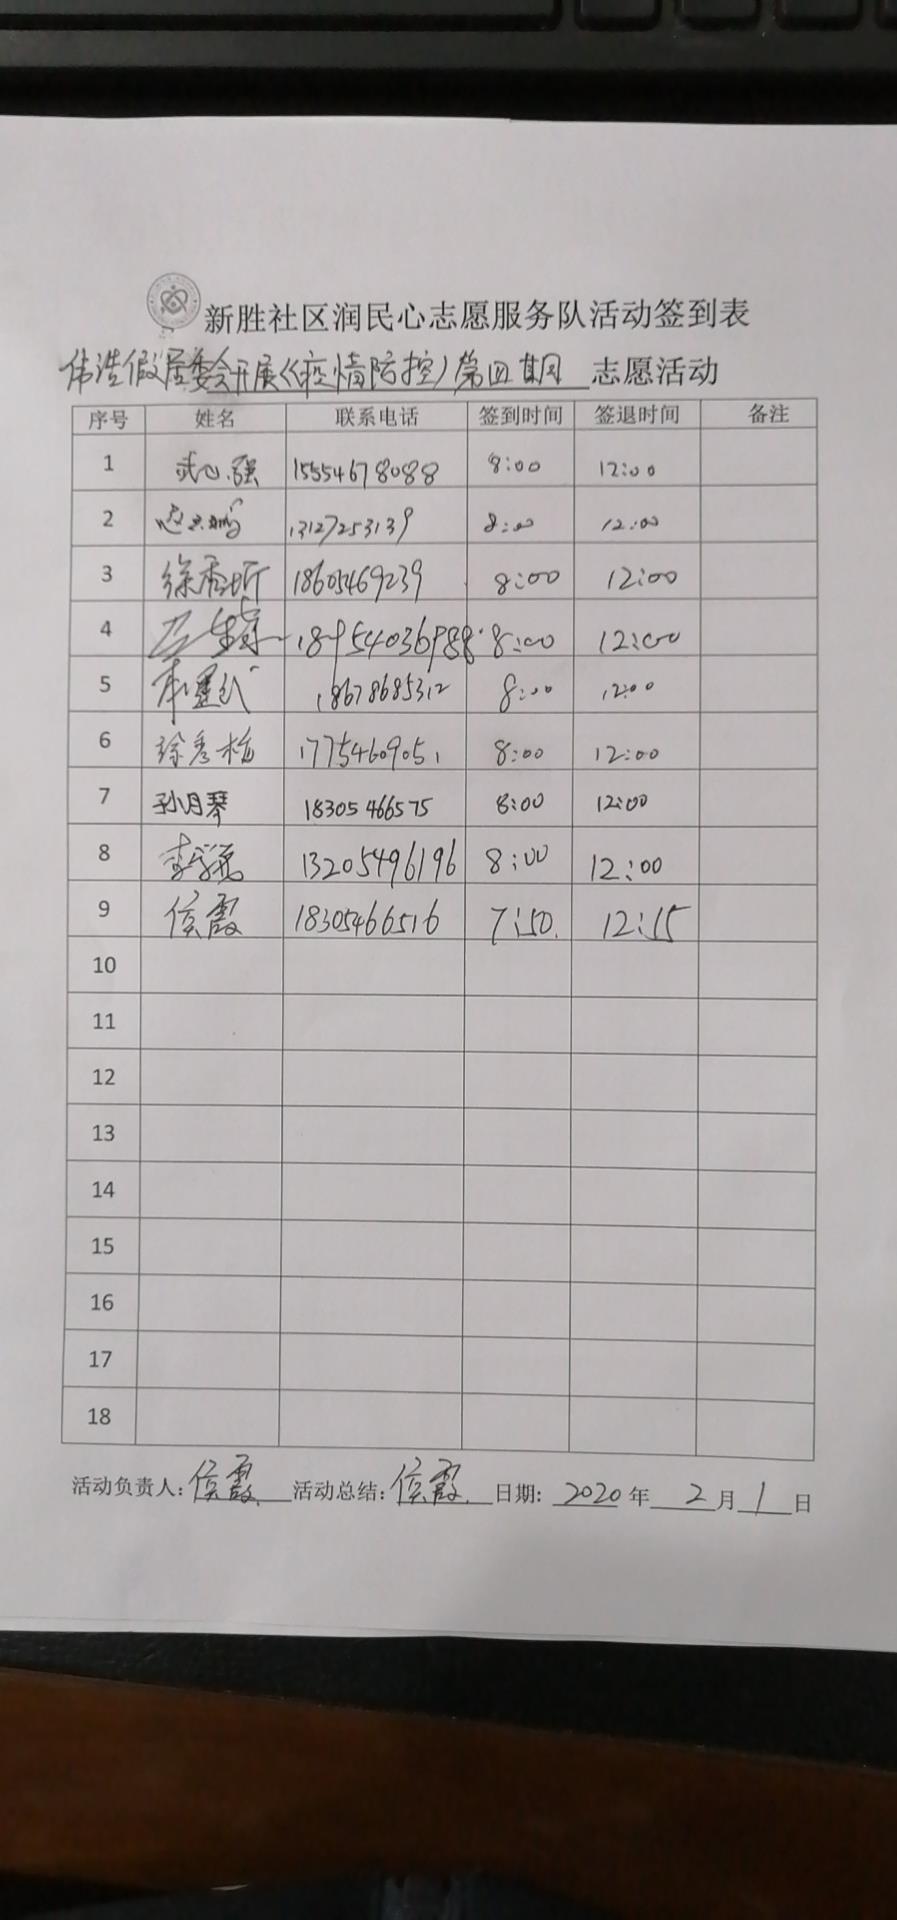 新胜社区润民心志愿服务队活动签到表
伟浩假居委会开展《疫情防控》第四期 志愿活动
序号 姓名 联系电话 签到时间 签退时间 备注
1 武心强 15554678088 8:00 12:00
2 13127253139 8:00 12:00
3 徐香圻 18605469239 8:00 12:00
4 18954036988 8:00 12:00
5 18678685312 8:00 12:00
6 徐秀梅 17754609051 8:00 12:00
7 孙月琴 18305466575 8:00 12:00
8 13205496196 8:00 12:00
9 侯霞 18305466516 7:50 12:15
10
11
12
13
14
15
16
17
18
活动负责人:侯霞 活动总结:侯霞 日期: 2020年 2月1日